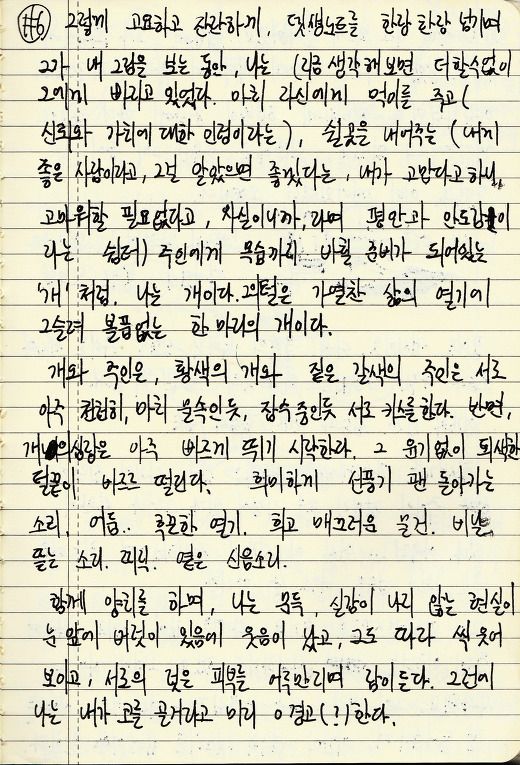 #6 그렇게 고요하고 잔잔하게, 뎃생노트를 한장 한장 넘기며
그가 내 그림을 보는 동안, 나는 (지금 생각해보면 더할수없이
그에게 빠지고 있었다. 마치 자신에게 먹이를 주고(
신뢰와 가치에 대한 인정이라는), 쉴곳을 내어주는 (내게
좋은 사람이라고, 그걸 알았으면 좋겠다는, 내가 고맙다고 하니,
고마워할 필요없다고, 사실이니까,라며 평안과 안도감이
라는 쉼터) 주인에게 목숨까지 바칠 준비가 되어있는
'개'처럼. 나는 개이다. 털은 가열찬 삶의 열기에
그슬려 볼품없는 한마리의 개이다.
개와 주인은, 황색의 개와 짙은 갈색의 주인은 서로
아주 천천히, 마치 물속인듯, 잠수중인듯 서로 키스를한다. 반면,
개의 심장은 아주 빠르게 뛰기 시작한다. 그 윤기없이 퇴색한
털끝이 바르르 떨린다. 희미하게 선풍기 팬 돌아가는
소리. 어둠.. 후끈한 열기. 희고 매끄러운 물건. 비닐
뜯는 소리. 찌익. 옅은 신음소리.
함께 양치를 하며, 나는 문득, 실감이 나지 않는 현실이
눈앞에 버젓이 있음에 웃음이 났고, 그도 따라 씩 웃어
보이고, 서로의 젖은 피부를 어루만지며 잠이든다. 그런데
나는 내가 코를 골거라고 미리 경고(?)한다.